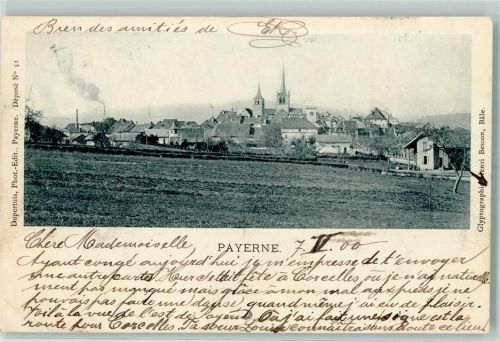 Bien des amitiés de
Dupertuis, Phot.-Edit. Payerne. Déposé Nº 51
Glyptographie Henri Besson, Bâle.
PAYERNE. 7 V 00
Chère Mademoiselle
Ayant congé aujourd'hui je m'empresse de t'envoyer
une autre carte. Mercr. était fête à Corcelles où je n'ai naturelle
ment pas manqué mais grâce à mon mal aux pieds je ne
pouvais pas faire une danse, quand même j'ai eu de plaisir.
Voilà la vue de l'est de Payerne. Où j'ai fait une signe est la
route pour Corcelles. Ta sœur Louise connaîtra sans doute ce lieu